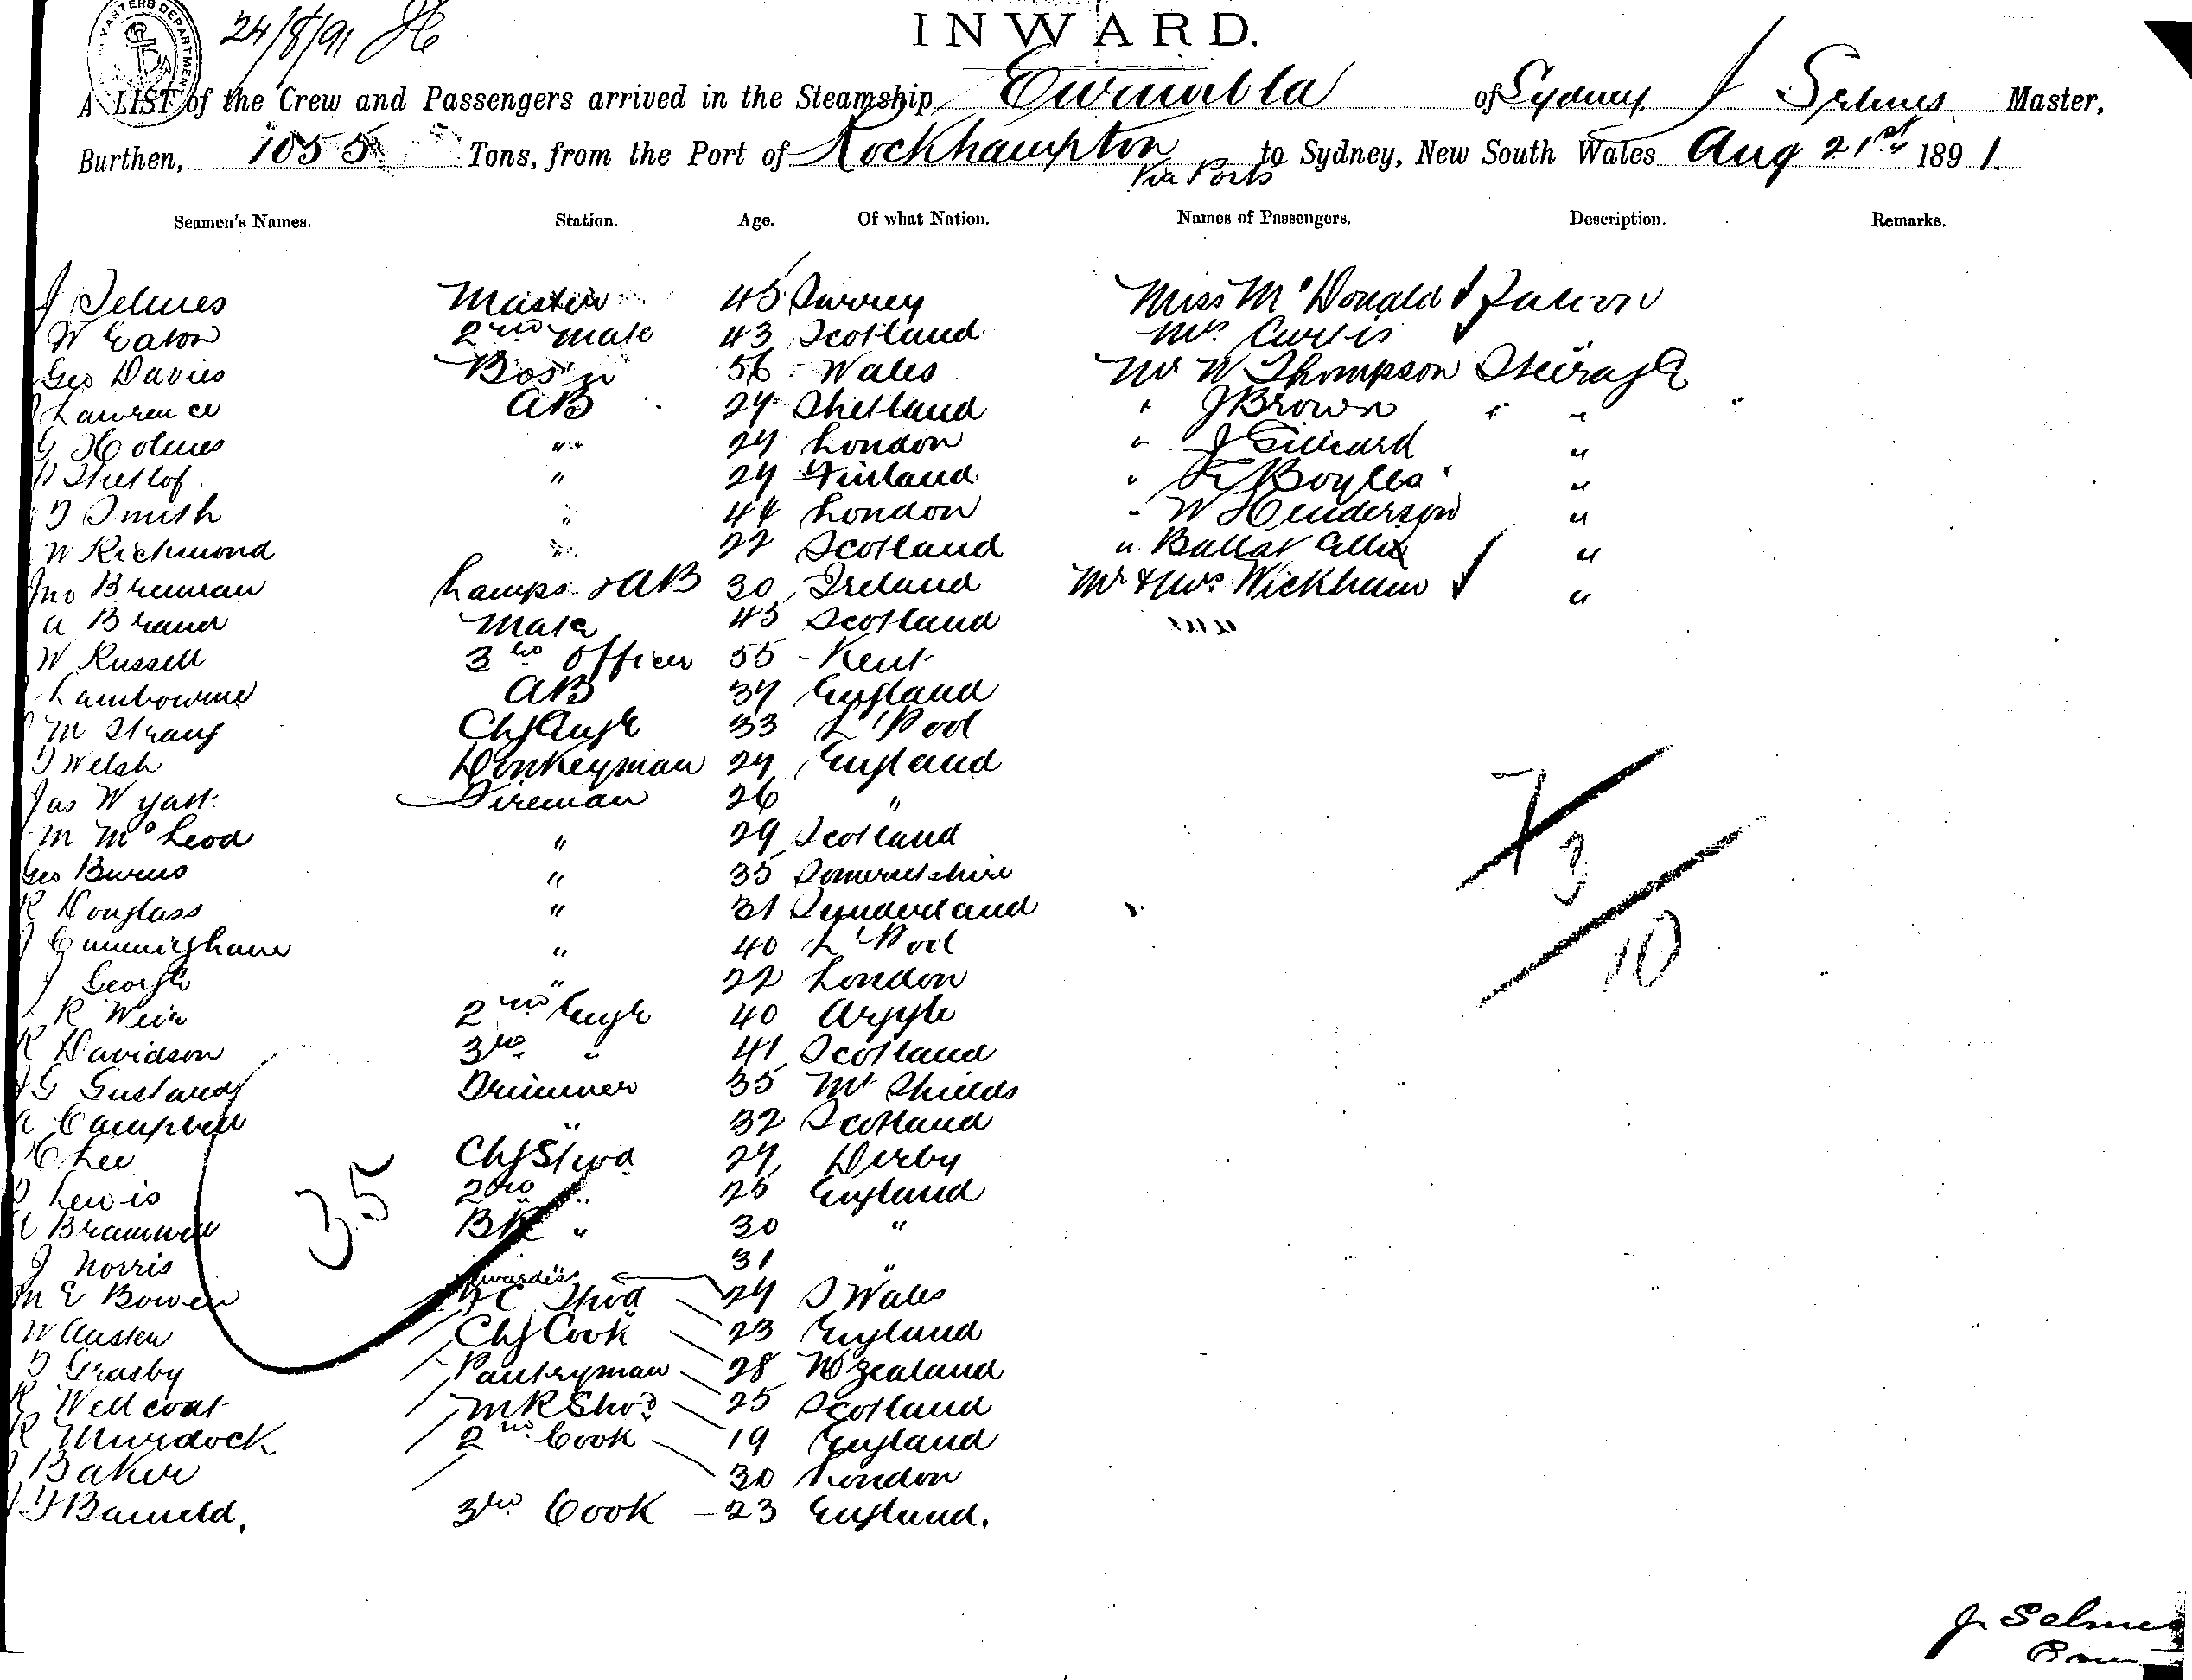 24/8/91
INWARD.
A LIST of the Crew and Passengers arrived in the Steamship Eurimbla of Sydney J Selmes Master,
Burthen, 1055 Tons, from the Port of Rockhampton to Sydney, New South Wales Aug 21st 1891.
Via Ports
Seamen's Names. Station. Age. Of what Nation. Names of Passengers. Description. Remarks.
J Selmes Master 45 Surrey Miss McDonald Saloon
W Eaton 2nd Mate 43 Scotland Mrs Curtis "
Geo Davies Bos'n 56 Wales Mr W Thompson Steerage
Lawrence AB 24 Shetland " J Brown " "
G Holmes " 24 London " J "
" 24 Finland " Boyles "
T Smith " 44 London " W Henderson "
W Richmond " 22 Scotland " Ballat "
Jno Brennan Lamps & AB 30 Ireland Mr & Mrs Wickham "
A Brand Mate 45 Scotland
W Russell 3rd Officer 55 Kent
Lambourne AB 34 England
M Strang Chf Engr 33 L'Pool
T Welsh Donkeyman 24 England
Jas Wyatt Fireman 26 "
M McLeod " 29 Scotland
Geo Burns " 35 Somersetshire
R Douglass " 31 Sunderland
J Cunningham " 40 L'Pool
J George " 22 London
R Weir 2nd Engr 40 Argyle
R Davidson 3rd " 41 Scotland
G Trimmer 35 Shields
A Campbell " 32 Scotland
C Lee Chf Stwd 24 Derby
Lewis 2nd " 25 England
Bramwell BR " 30 "
J Norris 31 "
M E Bowen FC Stwd 24 S Wales
W Austen Chf Cook 23 England
T Grasby Pantryman 28 N Zealand
R Wellcoat MR Stwd 25 Scotland
R Murdock 2nd Cook 19 England
Baker 30 London
3rd Cook 23 England.
7
3
10
35
J. Selmes